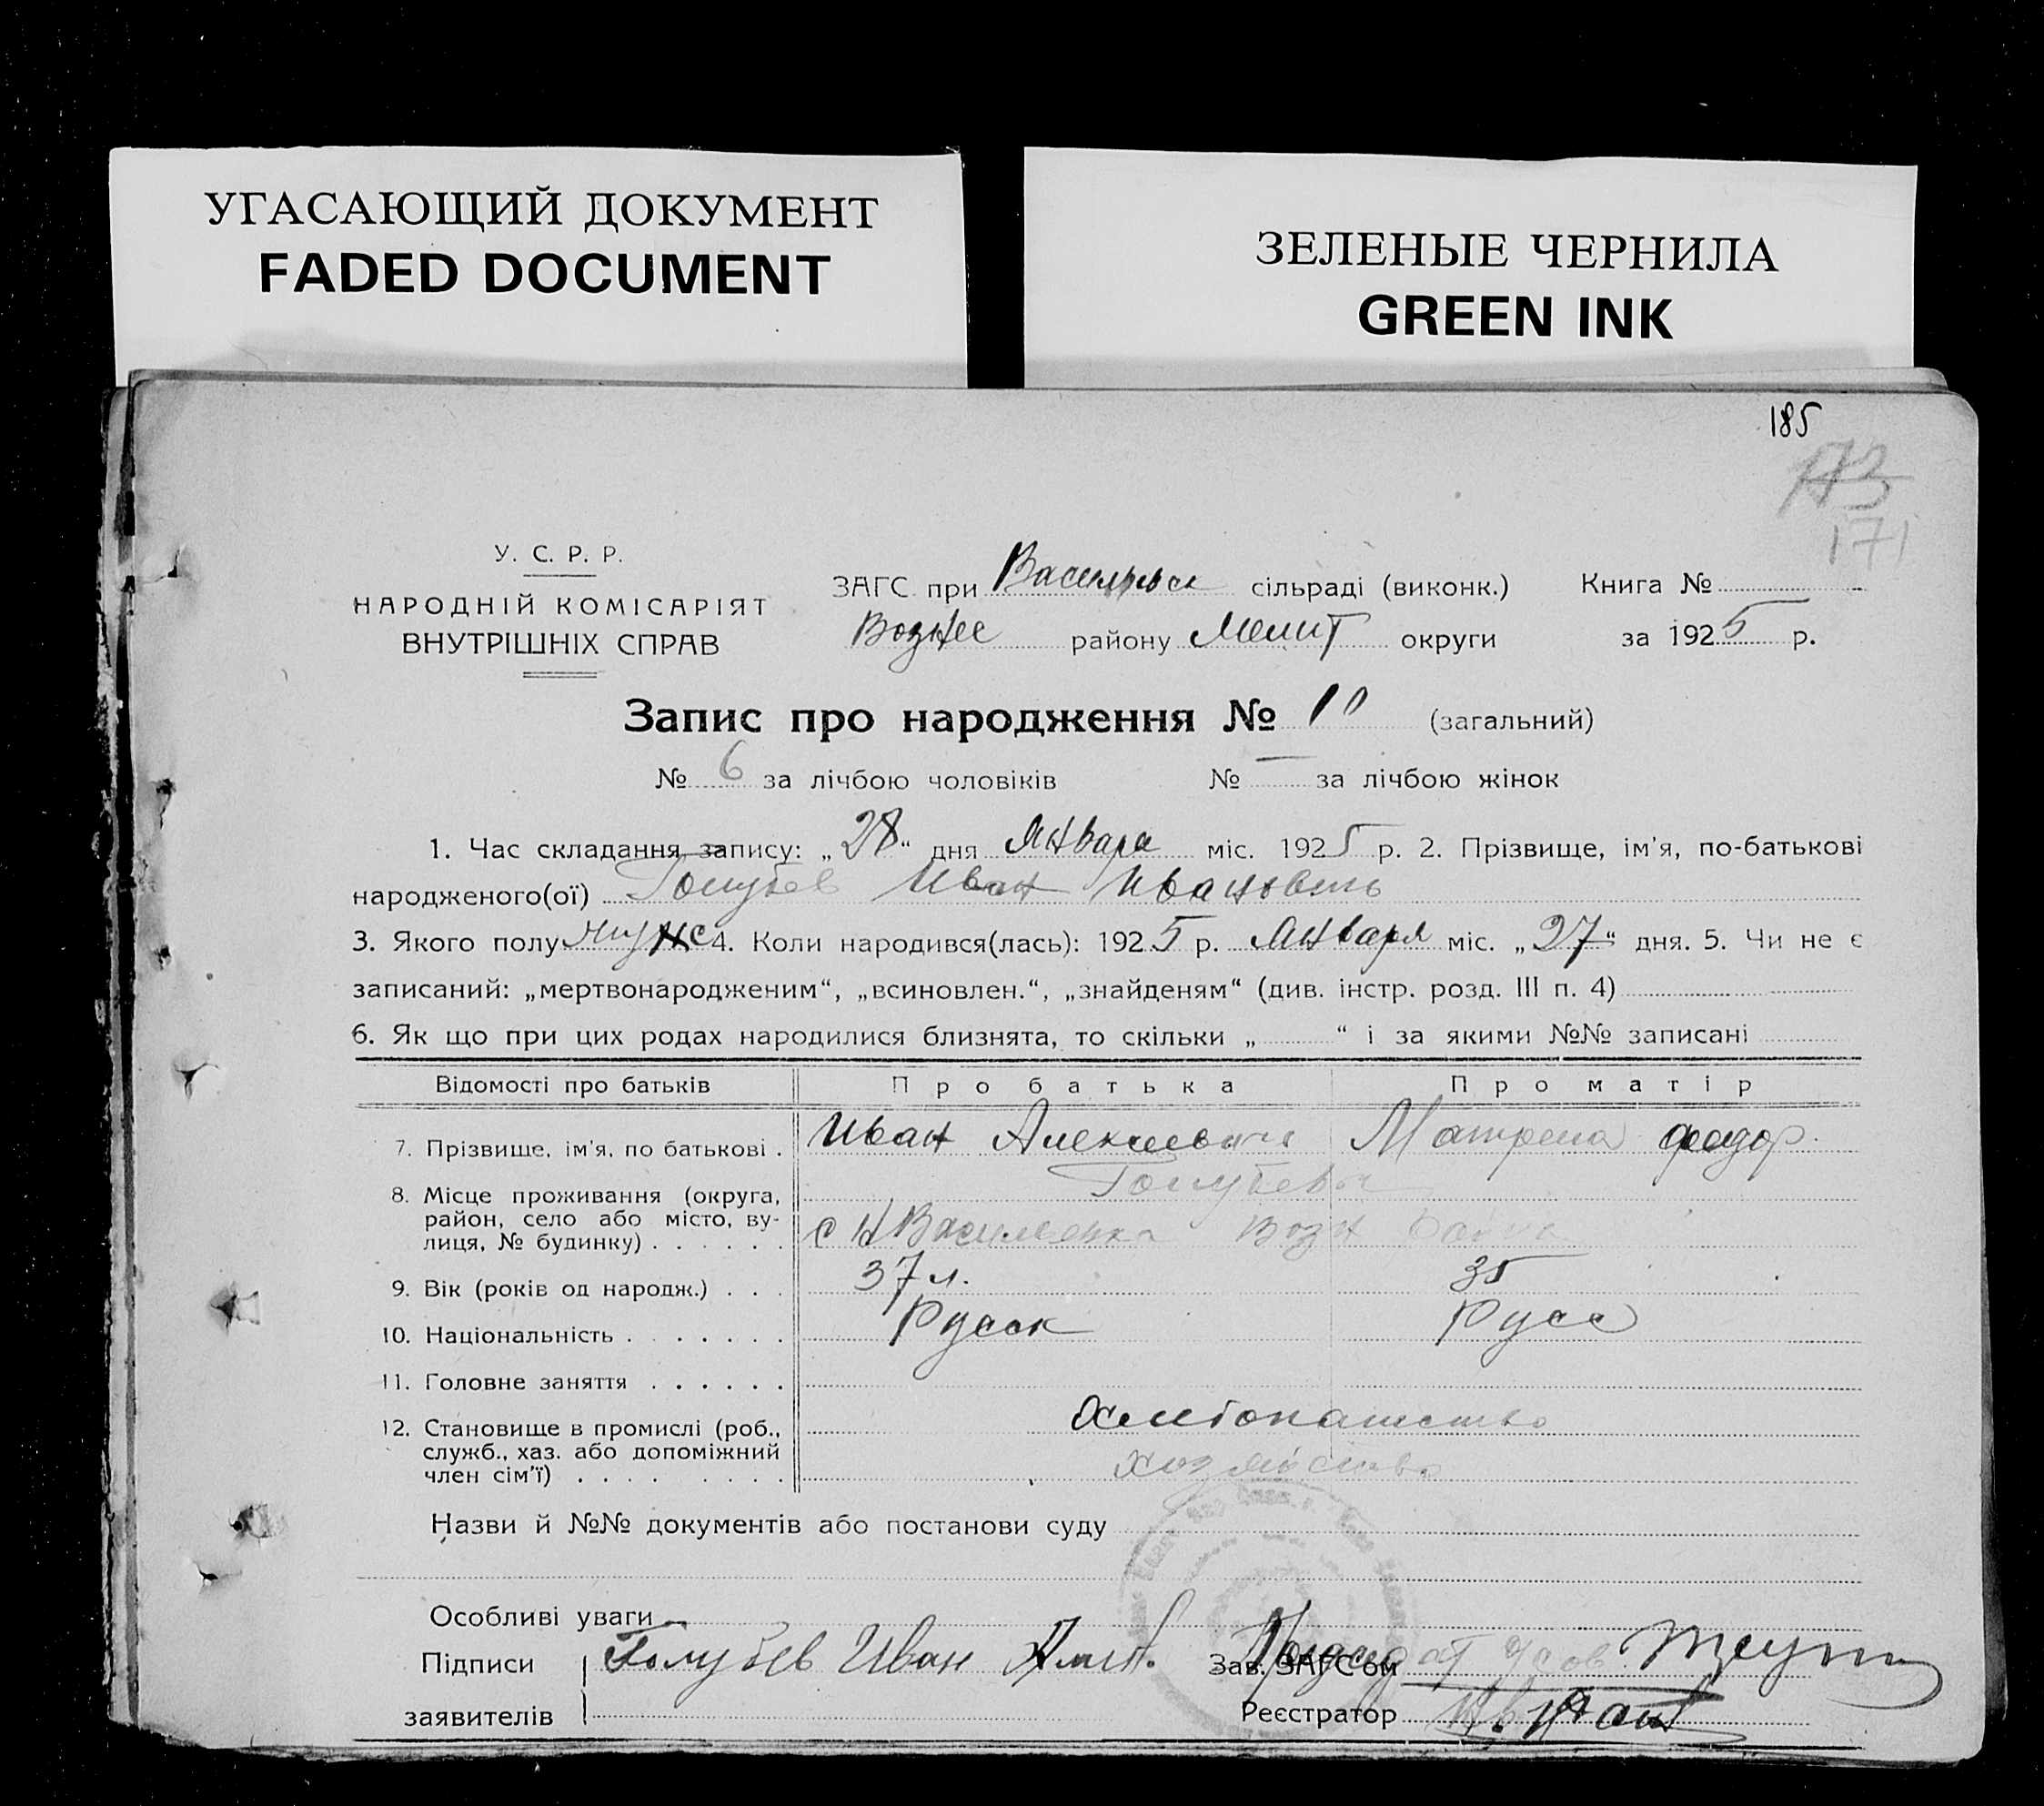 УГАСАЮЩИЙ ДОКУМЕНТ
FADED DOCUMENT
ЗЕЛЕНЫЕ ЧЕРНИЛА
GREEN INK
185
173
171
У. С. Р. Р.
НАРОДНІЙ КОМІСАРІЯТ
ВНУТРІШНІХ СПРАВ
ЗАГС при Васильевск сільраді (виконк.) Книга №
Вознес району Мелит округи за 1925 р.
Запис про народження № 10 (загальний)
№ 6 за лічбою чоловіків № — за лічбою жінок
1. Час складання запису: „28“ дня Января міс. 1925 р. 2. Прізвище, ім'я, по-батькові
народженого(ої) Голубев Иван Иванович
3. Якого полу муж 4. Коли народився(лась): 1925 р. Января міс. „27“ дня. 5. Чи не є
записаний: „мертвонародженим“, „всиновлен.“, „знайденям“ (див. інстр. розд. III п. 4)
6. Як що при цих родах народилися близнята, то скільки „ “ і за якими №№ записані
Відомості про батьків Про батька Про матір
7. Прізвище, ім'я, по батькові . Иван Алексеевич Матрена Федор.
Голубевы
8. Місце проживання (округа,
район, село або місто, ву-
лиця, № будинку) . . . . . . с Н Василевка Возн
9. Вік (років од народж.) . . . 37 л. 35
10. Національність . . . . . . . Русск Русс
11. Головне заняття . . . . . .
12. Становище в промислі (роб., Хлебопашество
служб., хаз. або допоміжний
член сім'ї) . . . . . . . . хозяйство
Назви й №№ документів або постанови суду
Особливі уваги
Підписи Голубев Иван Алек. Зав. ЗАГС'ом
заявителів Реєстратор